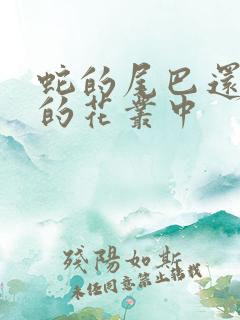 蛇的尾巴還
的花叢中
殘陽如斯
未經同意禁止轉載